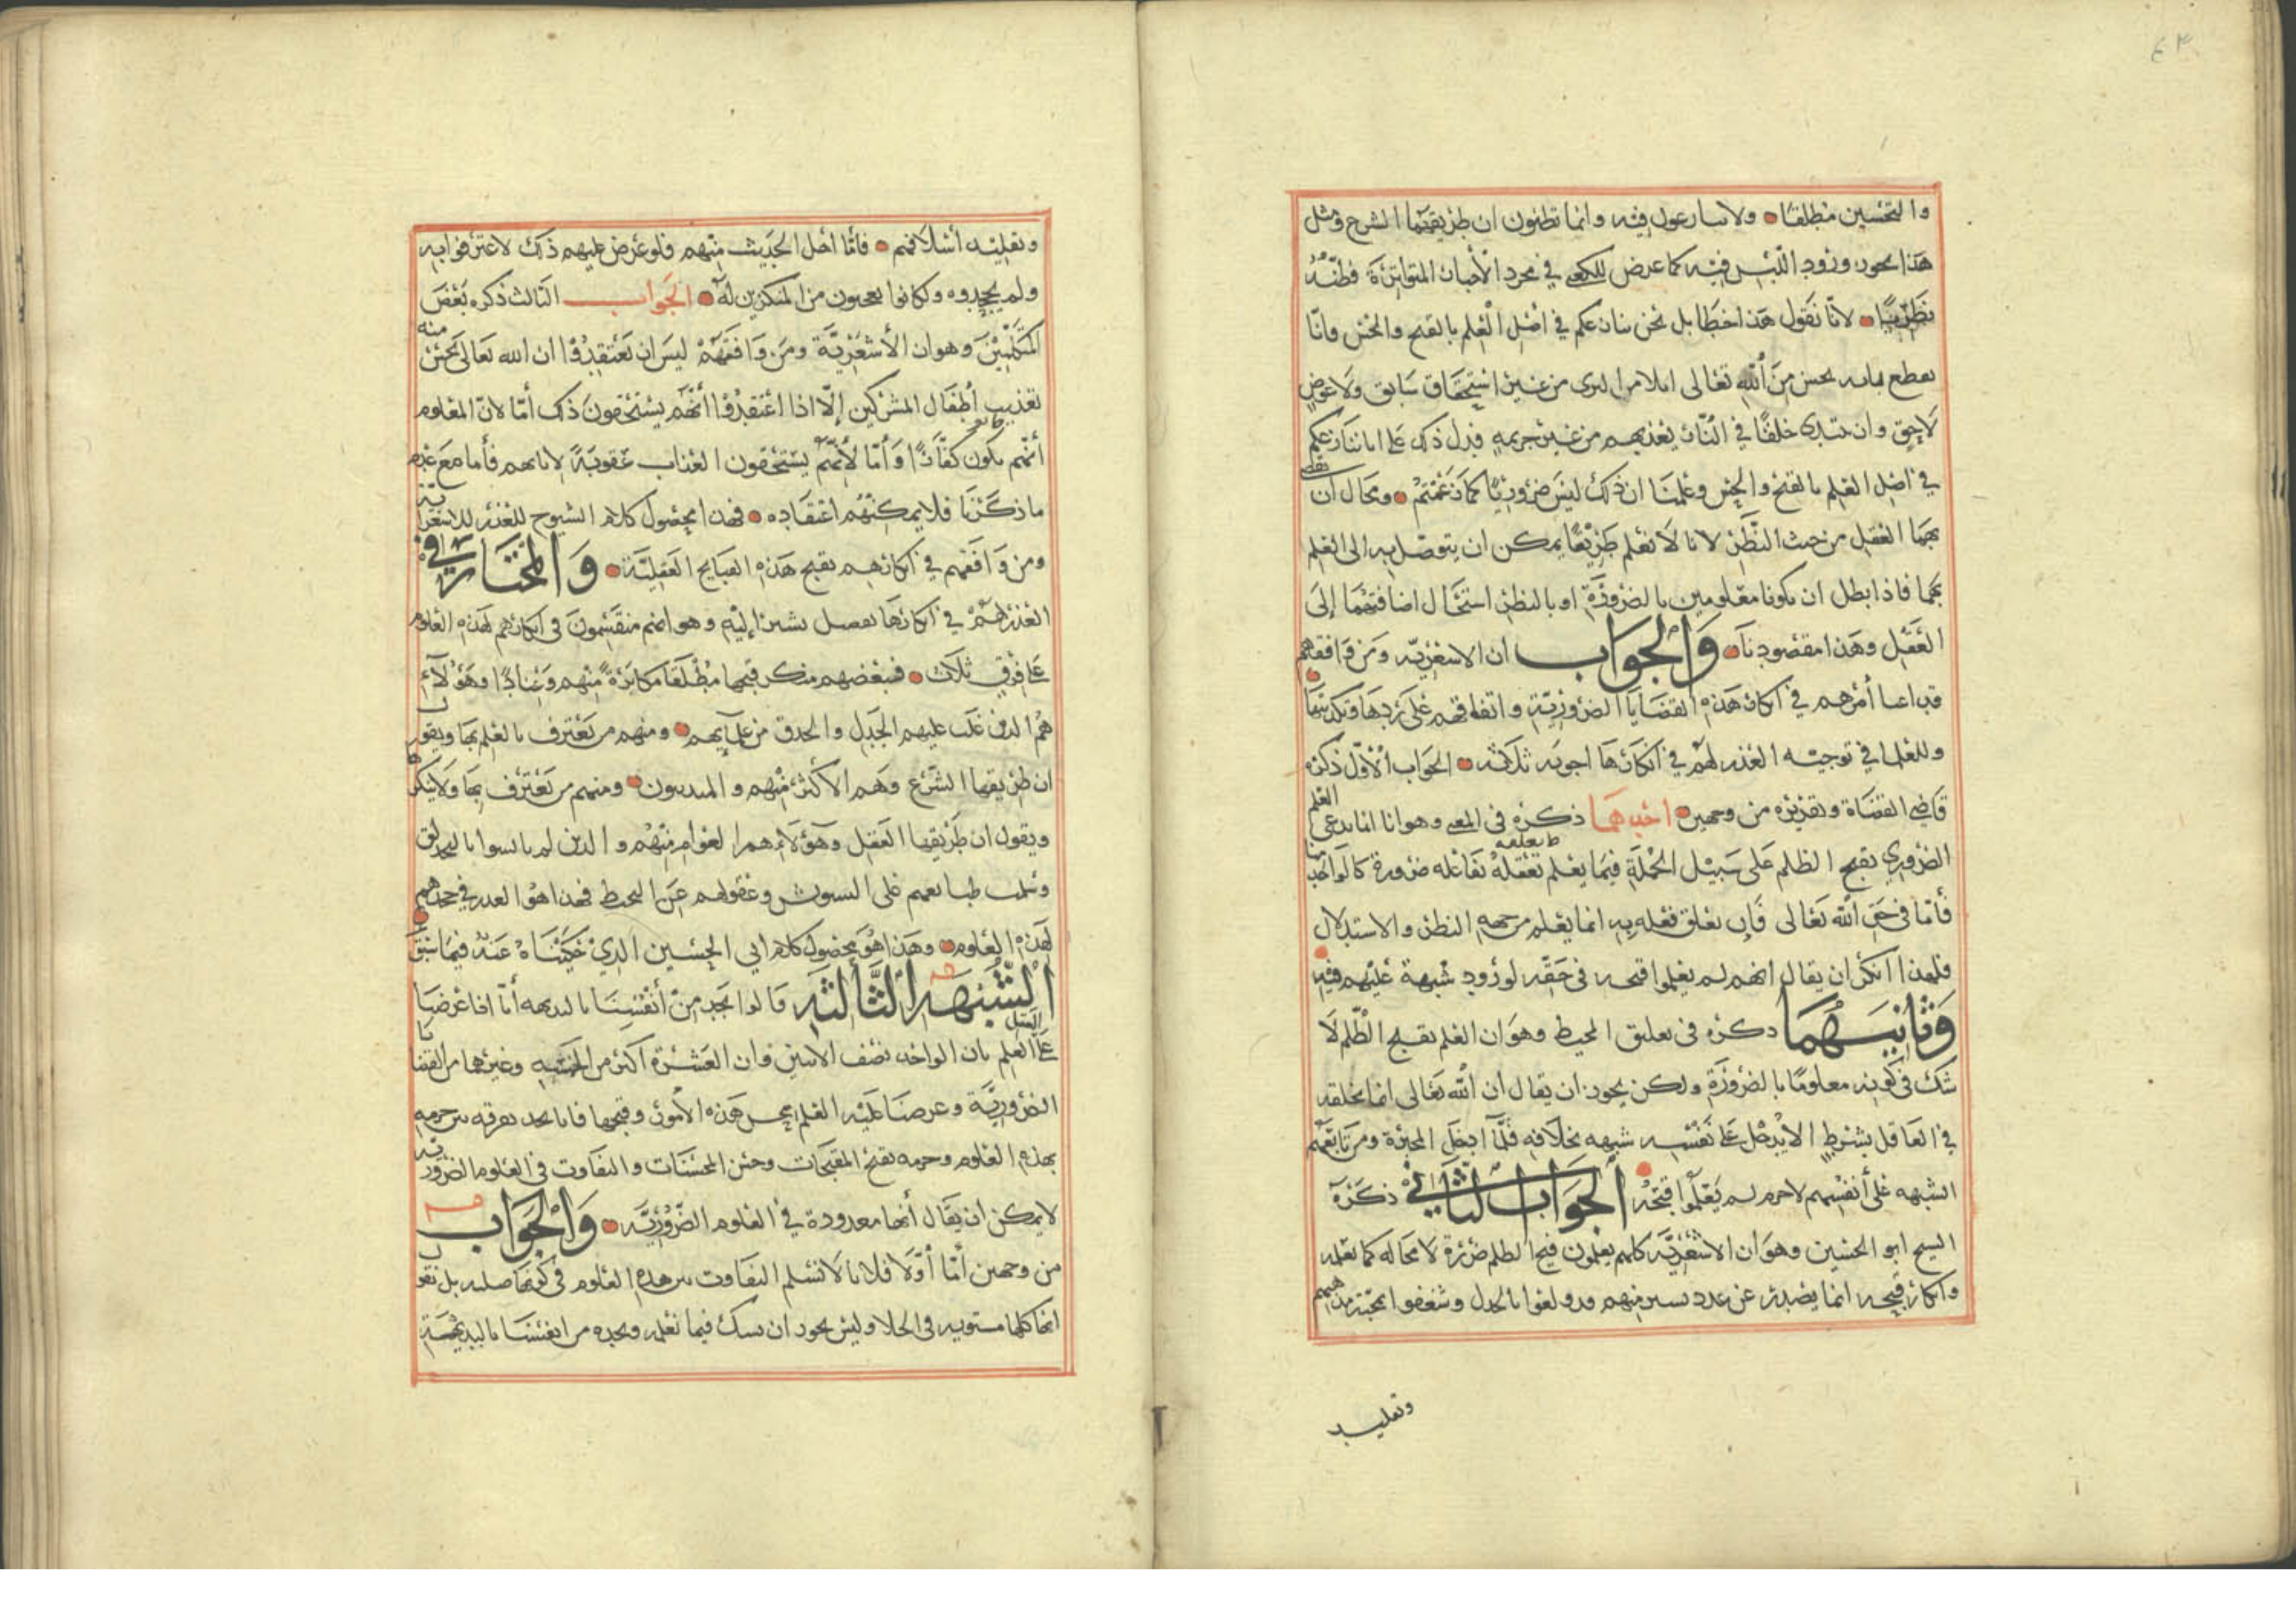 ٤٣
والتحسين مطلقا ولا تنازعون فيه وانما تظنون ان طريقهما الشرع ومثل
هذا يجوز ورود اللبس فيه كما عرض للكعبي في مجرد الأخبار المتواترة فظنه
نظريا لانا نقول هذا خطأ بل نحن ننازعكم في اصل العلم بالقبح والحسن وانا
نقطع بانه يحسن من الله تعالى ايلام البرى من غير استحقاق سابق ولا عوض
لاحق وان يبتدى خلقا في النار يعذبهم من غير جريمه فدل ذلك على انا ننازعكم
في اصل العلم بالقبح والحسن وعلمنا ان ذلك ليس ضروريا كما زعمتم ومحال ان يقضى
بهما العقل من حيث النظر لانا لا نعلم طريقا يمكن ان يتوصل به الى العلم
بهما فاذا بطل ان يكونا معلومين بالضرورة او بالنظر استحال اضافتهما إلى
العقل وهذا مقصودنا والجواب ان الاشعرية ومن وافقهم
قد اعيا أمرهم في انكار هذه القضايا الضرورية واتفاقهم على ردها وتكذيبها
وللعلما في توجيه العذر لهم في انكارها اجوبه ثلاثه الجواب الأول ذكره
قاضي القضاة وتقريره من وجهين احدهما ذكره في المغني وهو انا انما ندعي العلم
الضروري بقبح الظلم على سبيل الجملة فيما يعلم تعلقه بفاعله ضرورة كالواحد منا
فأما في حق الله تعالى فان تعلق فعله به انما يعلم من جهة النظر والاستدلال
فلهذا امكن ان يقال انهم لم يعلموا قبحه في حقه لورود شبهة عليهم فيه
وثانيهما ذكره في تعليق المحيط وهو ان العلم بقبح الظلم لا
شك في كونه معلوما بالضرورة ولكن يجوز ان يقال ان الله تعالى انما يخلقه
في العاقل بشرط الا يدخل على نفسه شبهه بخلافه فلما ادخل المجبرة ومن تابعهم
الشبهه على أنفسهم لاجرم لم يعلموا قبحه الجواب الثاني ذكره
الشيخ ابو الحسين وهو ان الاشعرية كلهم يعلمون قبح الظلم ضرورة لا محاله كما نعلمه
وانكار قبحه انما يصدر عن عدد يسير منهم قد ولعوا بالجدل وشغفوا بمحبة مذهبهم
وتقليد
وتقليد أسلافهم فأما اهل الحديث منهم فلو عرض عليهم ذلك لاعترفوا به
ولم يجحدوه ولكانوا يعجبون من المنكرين له الجواب الثالث ذكره بعض
المتكلمين وهو ان الأشعرية ومن وافقهم ليس ان يعتقدوا ان الله تعالى يحسن منه
تعذيب أطفال المشركين إلا اذا اعتقدوا أنهم يستحقون ذلك أما لان المعلوم
أنهم يكون كفارا وأما لأنهم يستحقون العذاب عقوبة لابائهم فأما مع عدم
ما ذكرنا فلا يمكنهم اعتقاده فهذا محصول كلام الشيوخ للعذر للاشعرية
ومن وافقهم في انكارهم بقبح هذه القبايح العقلية والمختار في
العذر لهم في انكارها تفصيل نشير إليه وهو انهم منقسمون في انكارهم لهذه العلوم
على فرق ثلاث فبعضهم منكر قبحها مطلقا مكابرة منهم وعنادا وهؤلاء
هم الذين غلب عليهم الجدل والحذق من علمايهم ومنهم من يعترف بالعلم بها ويقول
ان طريقها الشرع وهم الأكثر منهم ومنهم من يعترف بها ولا ينكرها
ويقول ان طريقها العقل وهؤلاء هم العوام منهم والذين لم يمارسوا الجدل
وسلمت طباعهم على التشويش وعقولهم عن التخبط فهذا هو العذر في جحدهم
لهذه العلوم وهذا هو محصول كلام ابي الحسين الذي حكيناه عنه فيما سبق
الشبهه الثالثه قالوا نجد من أنفسنا بالبديهه أنا اذا عرضنا
على العقل العلم بان الواحد نصف الاثنين وان العشرة اكثر من الخمسه وغيرهما من القضايا
الضرورية وعرضنا عليه العلم بحسن هذه الأمور وقبحها فانا نجد تفرقه بين جزمه
بهذه العلوم وجزمه بقبح المقبحات وحسن المحسنات والتفاوت في العلوم الضرورية
لا يمكن ان يقال أنها معدودة في العلوم الضرورية والجواب
من وجهين أما أولا فلانا لا نسلم التفاوت بين هذه العلوم في كونها حاصله بل نقول
انها كلها مستويه في الجلا وليس يجوز ان نشك فيما نعلمه ونجده من انفسنا بالبديهة